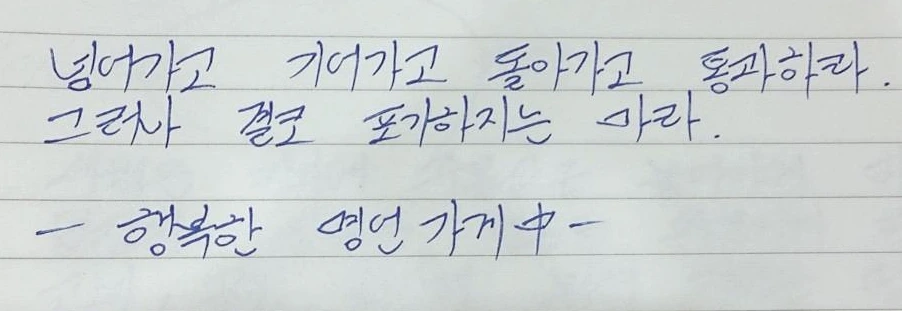 넘어가고 기어가고 돌아가고 통과하라.
그러나 결코 포기하지는 마라.
- 행복한 명언 가게 中 -